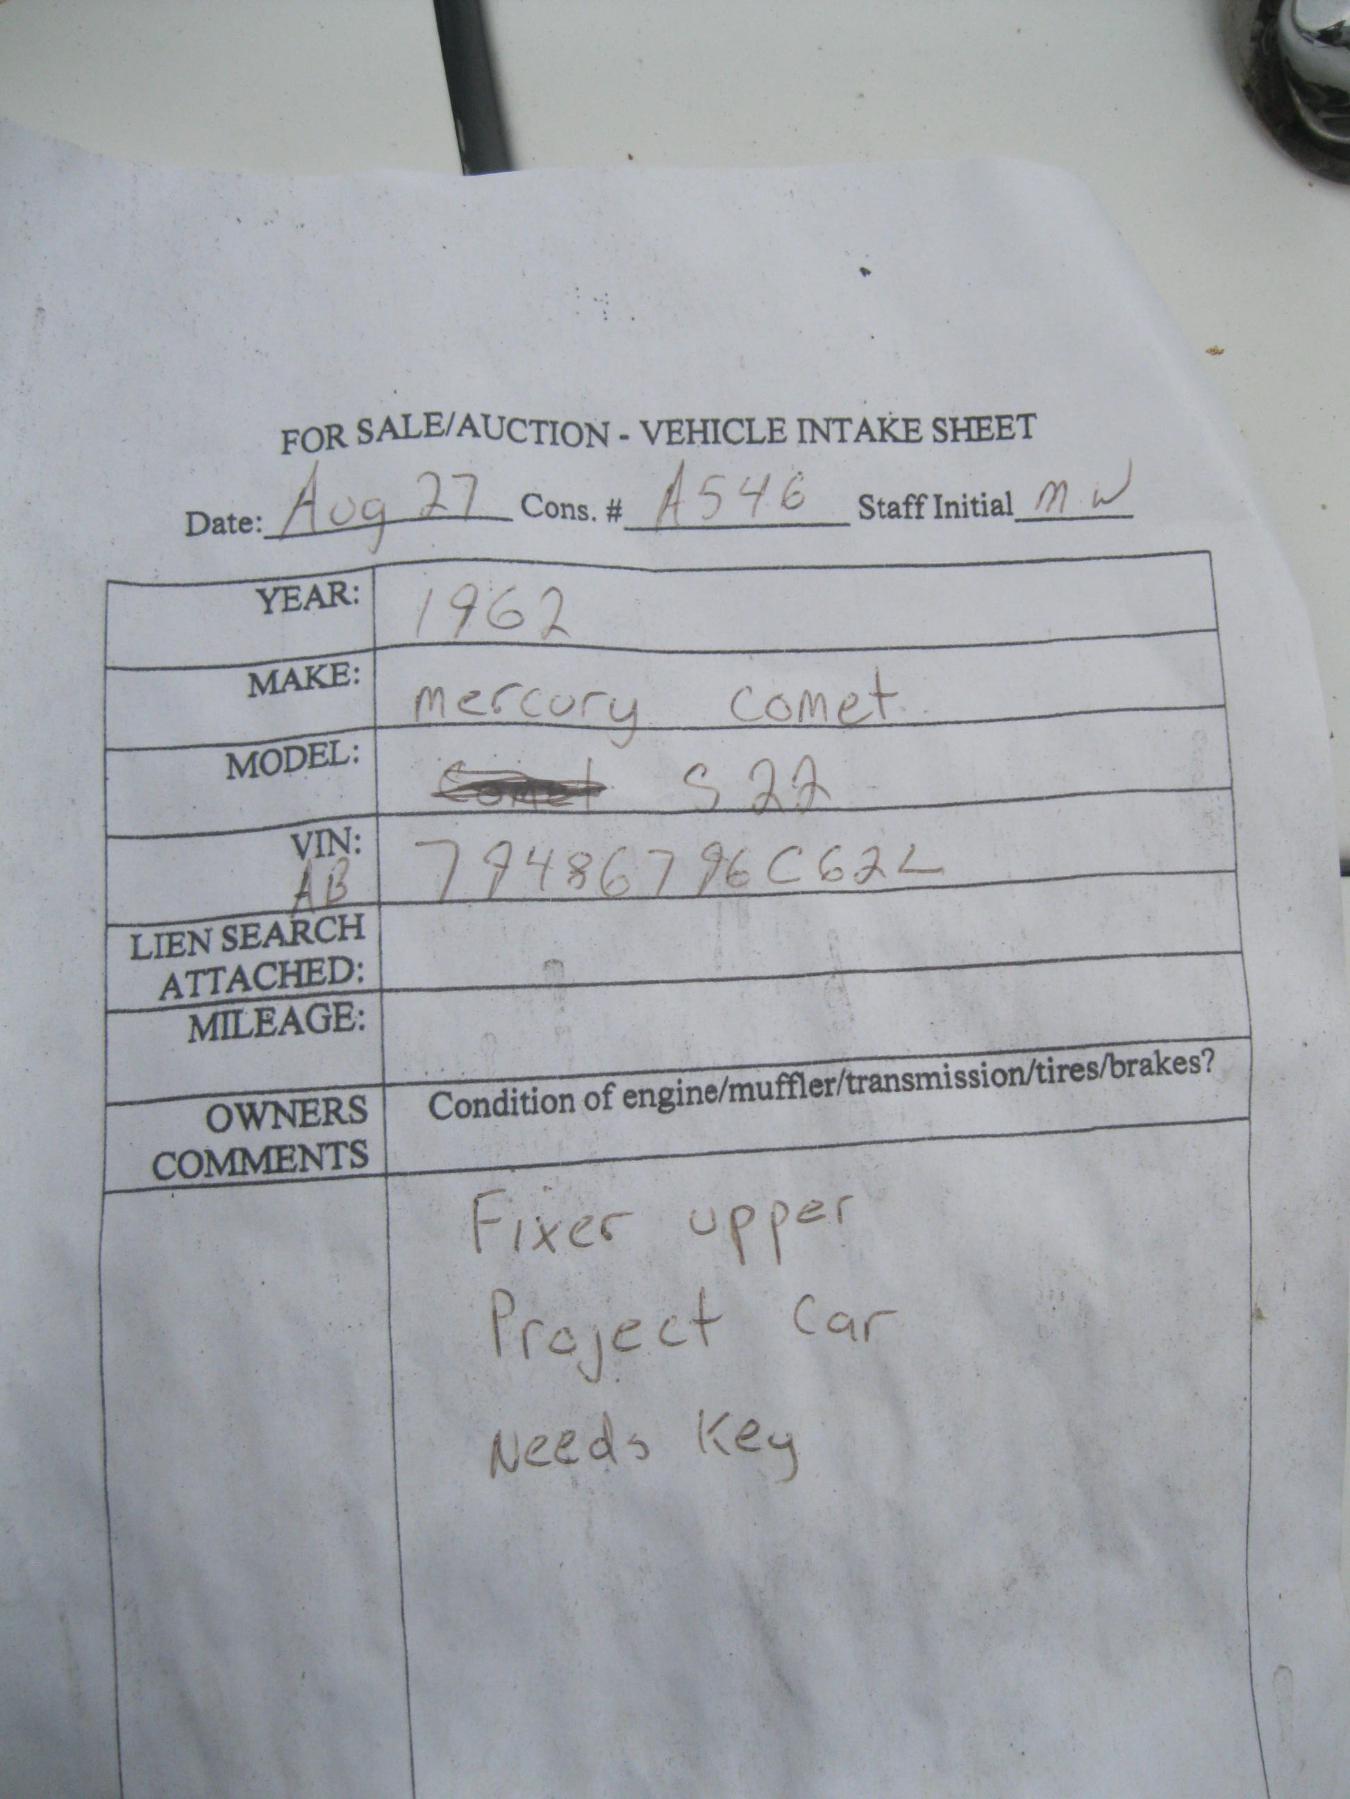 FOR SALE/AUCTION - VEHICLE INTAKE SHEET
Date: Aug 27 Cons. # A546 Staff Initial MW
YEAR: 1962
MAKE: mercury comet
MODEL: Comet S22
VIN: 79486796C62L
AB
LIEN SEARCH
ATTACHED:
MILEAGE:
OWNERS
COMMENTS
Condition of engine/muffler/transmission/tires/brakes?
Fixer upper
Project Car
Needs Key